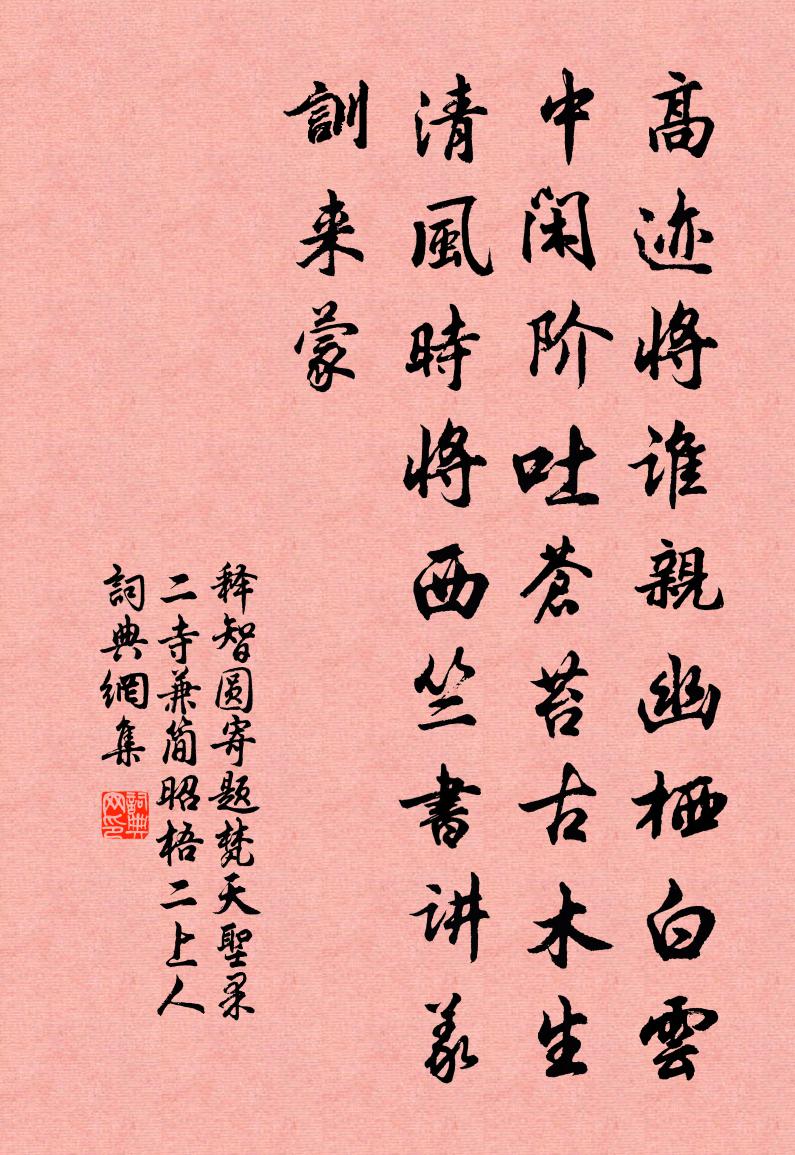 高迹将谁親幽栖白雲
中闲阶吐蒼苔古木生
清風時将西竺書讲義
訓来蒙
释智圆寄题梵天聖果
二寺兼简昭梧二上人
詞典網集
詞典网印